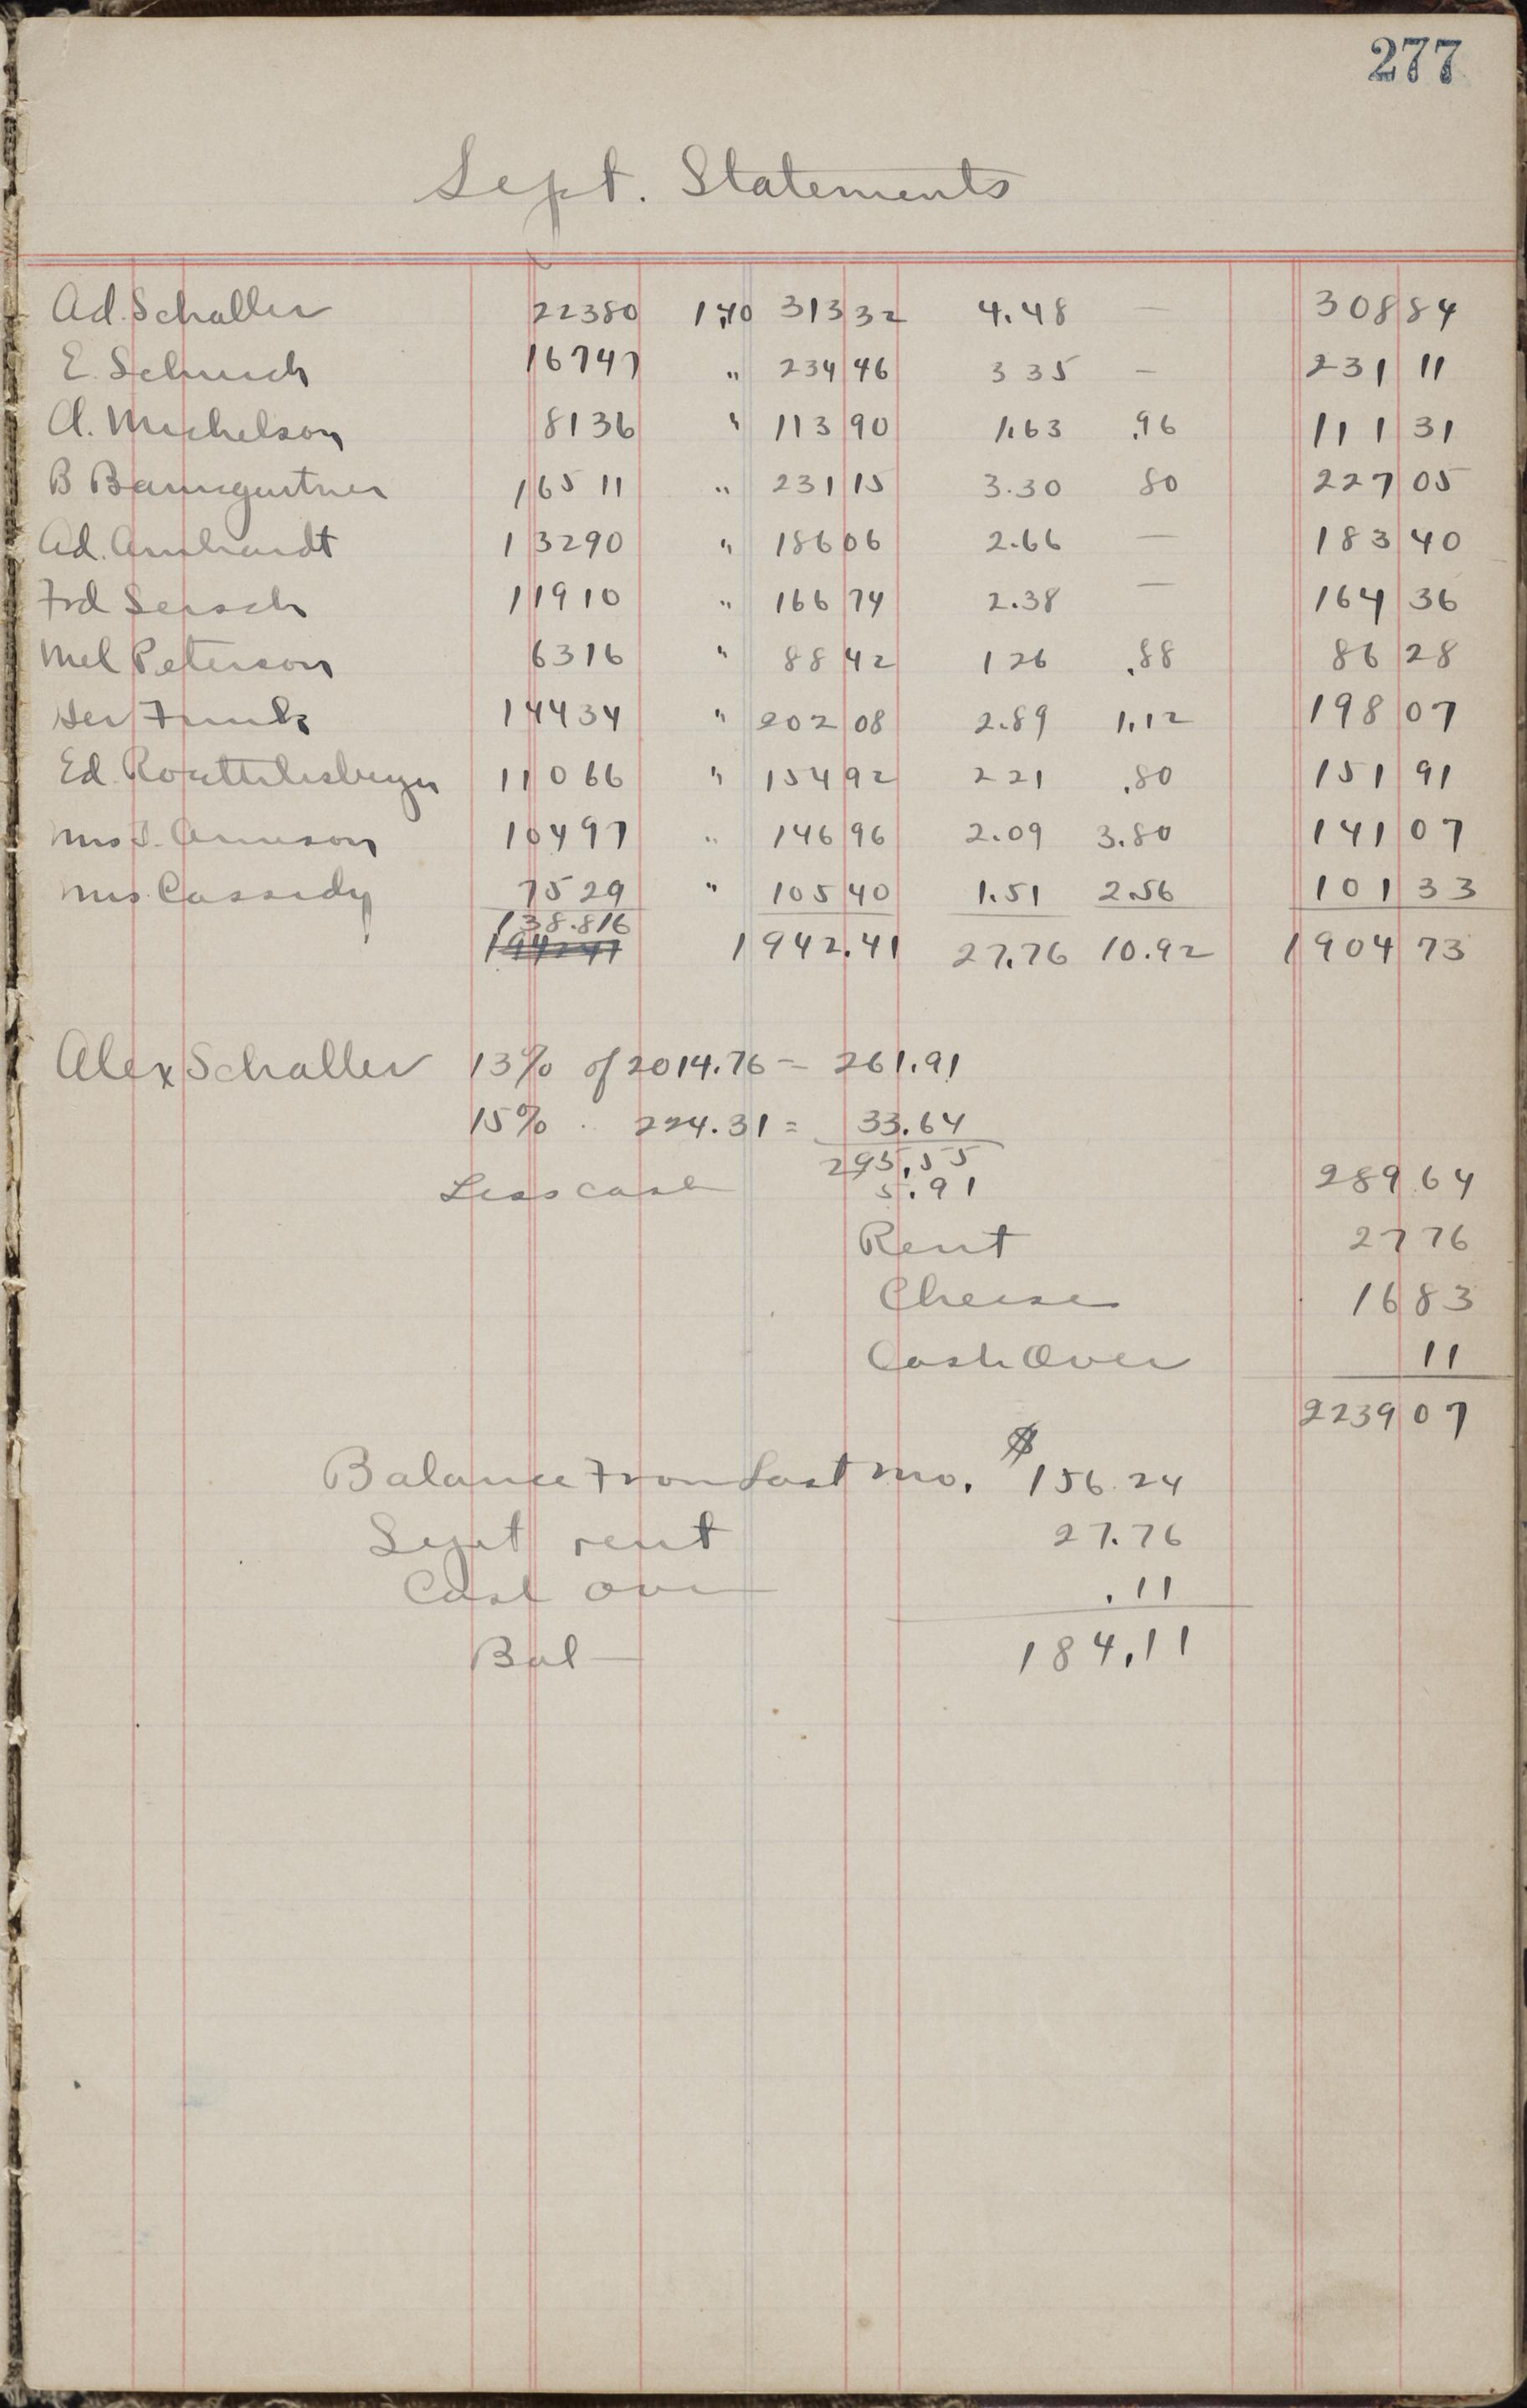 277
Sept. Statements
Ad. Schaller 22380 1.40 313 32 4.48 — 308 84
E. Schuch 16747 " 234 46 3 35 — 231 11
A. Michelson 8136 " 113 90 1.63 .96 111 31
B Baumgartner 16511 " 231 15 3.30 80 227 05
Ad. Arnhardt 13290 " 186 06 2.66 — 183 40
Frd Sersch 11910 " 166 74 2.38 — 164 36
Mel Peterson 6316 " 88 42 1 26 .88 86 28
Funk 14434 " 202 08 2.89 1.12 198 07
Ed. 11066 " 154 92 2 21 .80 151 91
Mrs T. Arneson 10497 " 146 96 2.09 3.80 141 07
Mrs. Cassidy 7529 " 105 40 1.51 2.56 101 33
138.816
194241 1942.41 27.76 10.92 1904 73
Alex Schaller 13% of 2014.76 = 261.91
15% " 224.31 = 33.64
295.55
Less cash 5.91 289 64
Rent 27 76
Cheese 16 83
Cash Over 11
2239 07
Balance From Last Mo. $156.24
Sept rent 27.76
Cash over .11
Bal — 184.11